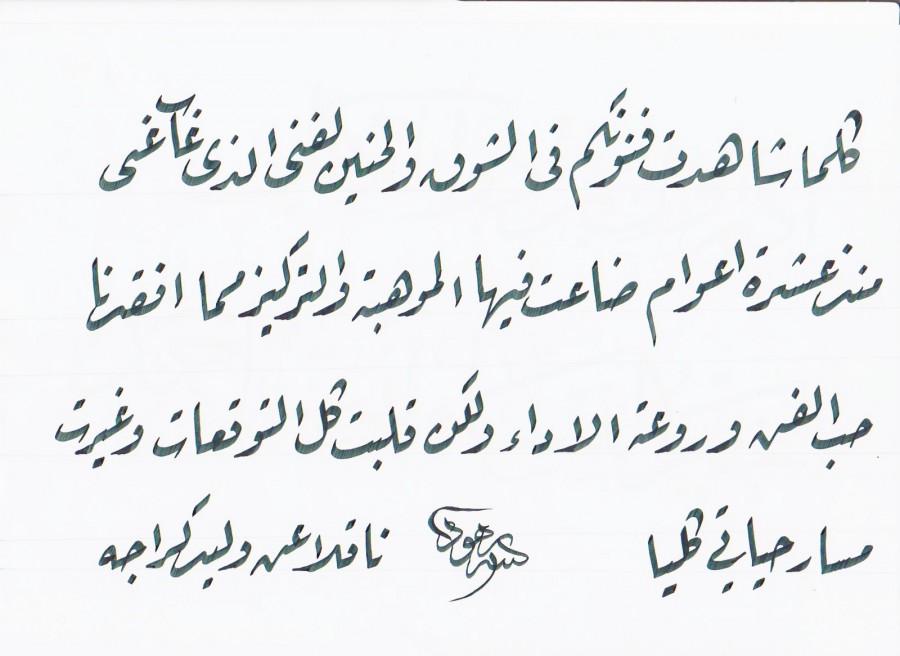 كلما شاهدت فنونكم فى الشوق والحنين لفنى الذى غاب عنى
منذ عشرة اعوام ضاعت فيها الموهبة والتركيز مما افقدنا
حب الفن وروعة الاداء ولكن قلبت كل التوقعات وغيرت
مسار حياتي كليا ناقلا عن وليد كراجه